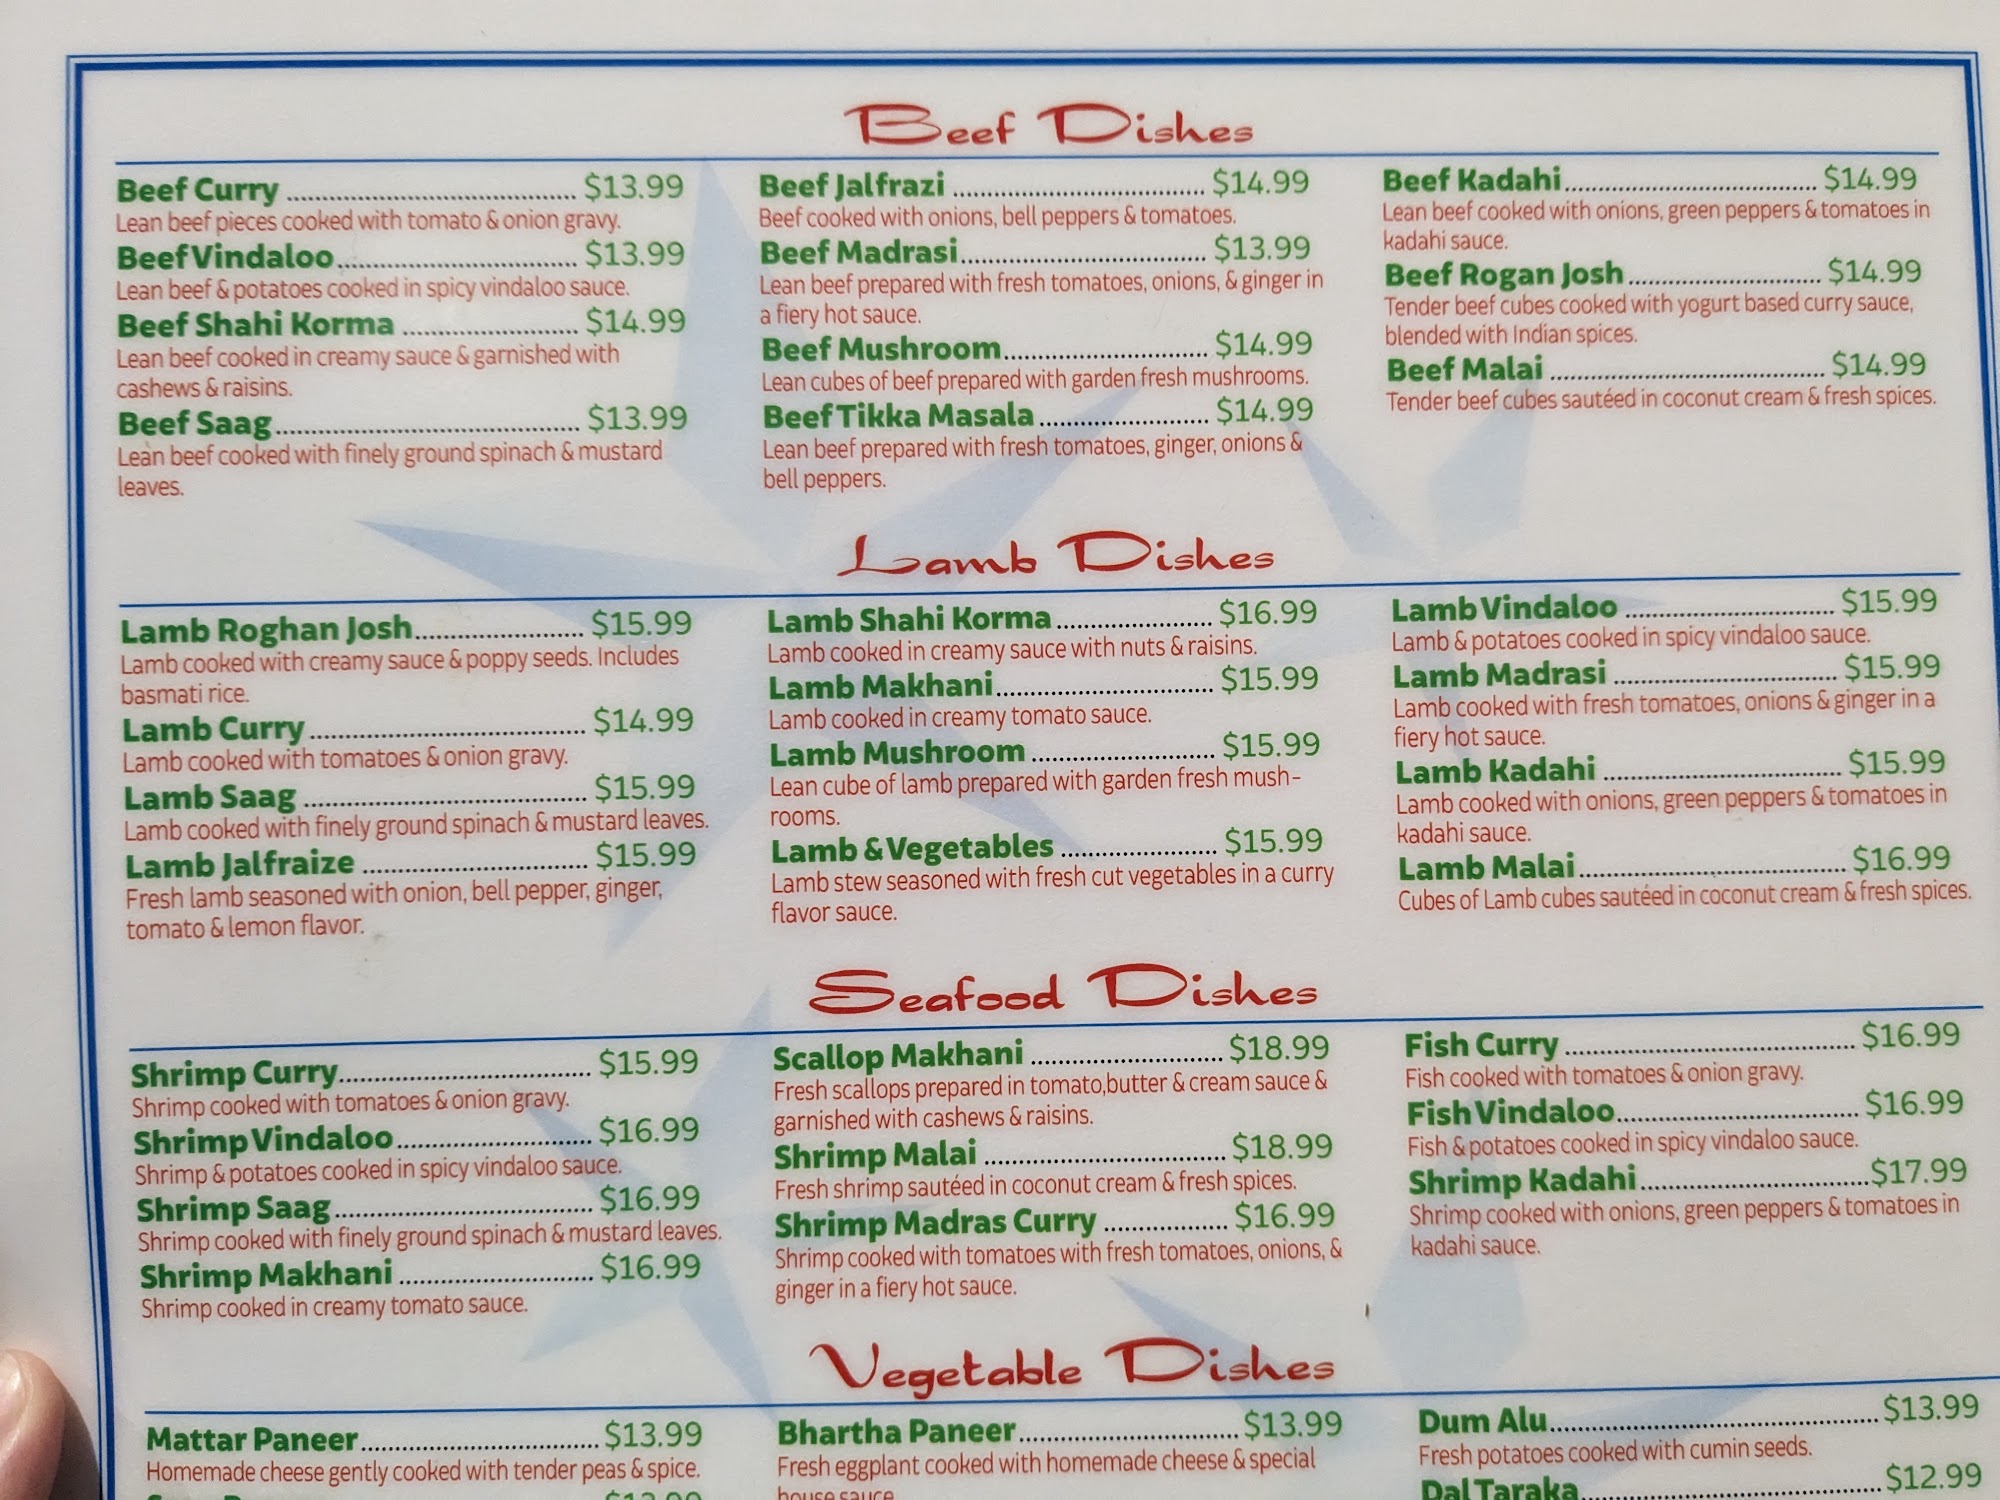 Beef Dishes
Beef Curry ................................ $13.99
Lean beef pieces cooked with tomato & onion gravy.
Beef Vindaloo ........................... $13.99
Lean beef & potatoes cooked in spicy vindaloo sauce.
Beef Shahi Korma .................... $14.99
Lean beef cooked in creamy sauce & garnished with
cashews & raisins.
Beef Saag .................................. $13.99
Lean beef cooked with finely ground spinach & mustard
leaves.
Beef Jalfrazi ............................ $14.99
Beef cooked with onions, bell peppers & tomatoes.
Beef Madrasi ........................... $13.99
Lean beef prepared with fresh tomatoes, onions, & ginger in
a fiery hot sauce.
Beef Mushroom ....................... $14.99
Lean cubes of beef prepared with garden fresh mushrooms.
Beef Tikka Masala ................... $14.99
Lean beef prepared with fresh tomatoes, ginger, onions &
bell peppers.
Beef Kadahi ............................ $14.99
Lean beef cooked with onions, green peppers & tomatoes in
kadahi sauce.
Beef Rogan Josh ..................... $14.99
Tender beef cubes cooked with yogurt based curry sauce,
blended with Indian spices.
Beef Malai .............................. $14.99
Tender beef cubes sautéed in coconut cream & fresh spices.
Lamb Dishes
Lamb Roghan Josh ................... $15.99
Lamb cooked with creamy sauce & poppy seeds. Includes
basmati rice.
Lamb Curry .............................. $14.99
Lamb cooked with tomatoes & onion gravy.
Lamb Saag ............................... $15.99
Lamb cooked with finely ground spinach & mustard leaves.
Lamb Jalfraize ......................... $15.99
Fresh lamb seasoned with onion, bell pepper, ginger,
tomato & lemon flavor.
Lamb Shahi Korma .................. $16.99
Lamb cooked in creamy sauce with nuts & raisins.
Lamb Makhani ........................ $15.99
Lamb cooked in creamy tomato sauce.
Lamb Mushroom .................... $15.99
Lean cube of lamb prepared with garden fresh mush-
rooms.
Lamb & Vegetables ................. $15.99
Lamb stew seasoned with fresh cut vegetables in a curry
flavor sauce.
Lamb Vindaloo ....................... $15.99
Lamb & potatoes cooked in spicy vindaloo sauce.
Lamb Madrasi ........................ $15.99
Lamb cooked with fresh tomatoes, onions & ginger in a
fiery hot sauce.
Lamb Kadahi .......................... $15.99
Lamb cooked with onions, green peppers & tomatoes in
kadahi sauce.
Lamb Malai ............................ $16.99
Cubes of Lamb cubes sautéed in coconut cream & fresh spices.
Seafood Dishes
Shrimp Curry ........................... $15.99
Shrimp cooked with tomatoes & onion gravy.
Shrimp Vindaloo ..................... $16.99
Shrimp & potatoes cooked in spicy vindaloo sauce.
Shrimp Saag ............................ $16.99
Shrimp cooked with finely ground spinach & mustard leaves.
Shrimp Makhani ..................... $16.99
Shrimp cooked in creamy tomato sauce.
Scallop Makhani ..................... $18.99
Fresh scallops prepared in tomato,butter & cream sauce &
garnished with cashews & raisins.
Shrimp Malai .......................... $18.99
Fresh shrimp sautéed in coconut cream & fresh spices.
Shrimp Madras Curry ............. $16.99
Shrimp cooked with tomatoes with fresh tomatoes, onions, &
ginger in a fiery hot sauce.
Fish Curry ................................ $16.99
Fish cooked with tomatoes & onion gravy.
Fish Vindaloo .......................... $16.99
Fish & potatoes cooked in spicy vindaloo sauce.
Shrimp Kadahi ......................... $17.99
Shrimp cooked with onions, green peppers & tomatoes in
kadahi sauce.
Vegetable Dishes
Mattar Paneer .......................... $13.99
Homemade cheese gently cooked with tender peas & spice.
Bhartha Paneer ........................ $13.99
Fresh eggplant cooked with homemade cheese & special
house sauce
Dum Alu .................................... $13.99
Fresh potatoes cooked with cumin seeds.
Dal Taraka ................................. $12.99